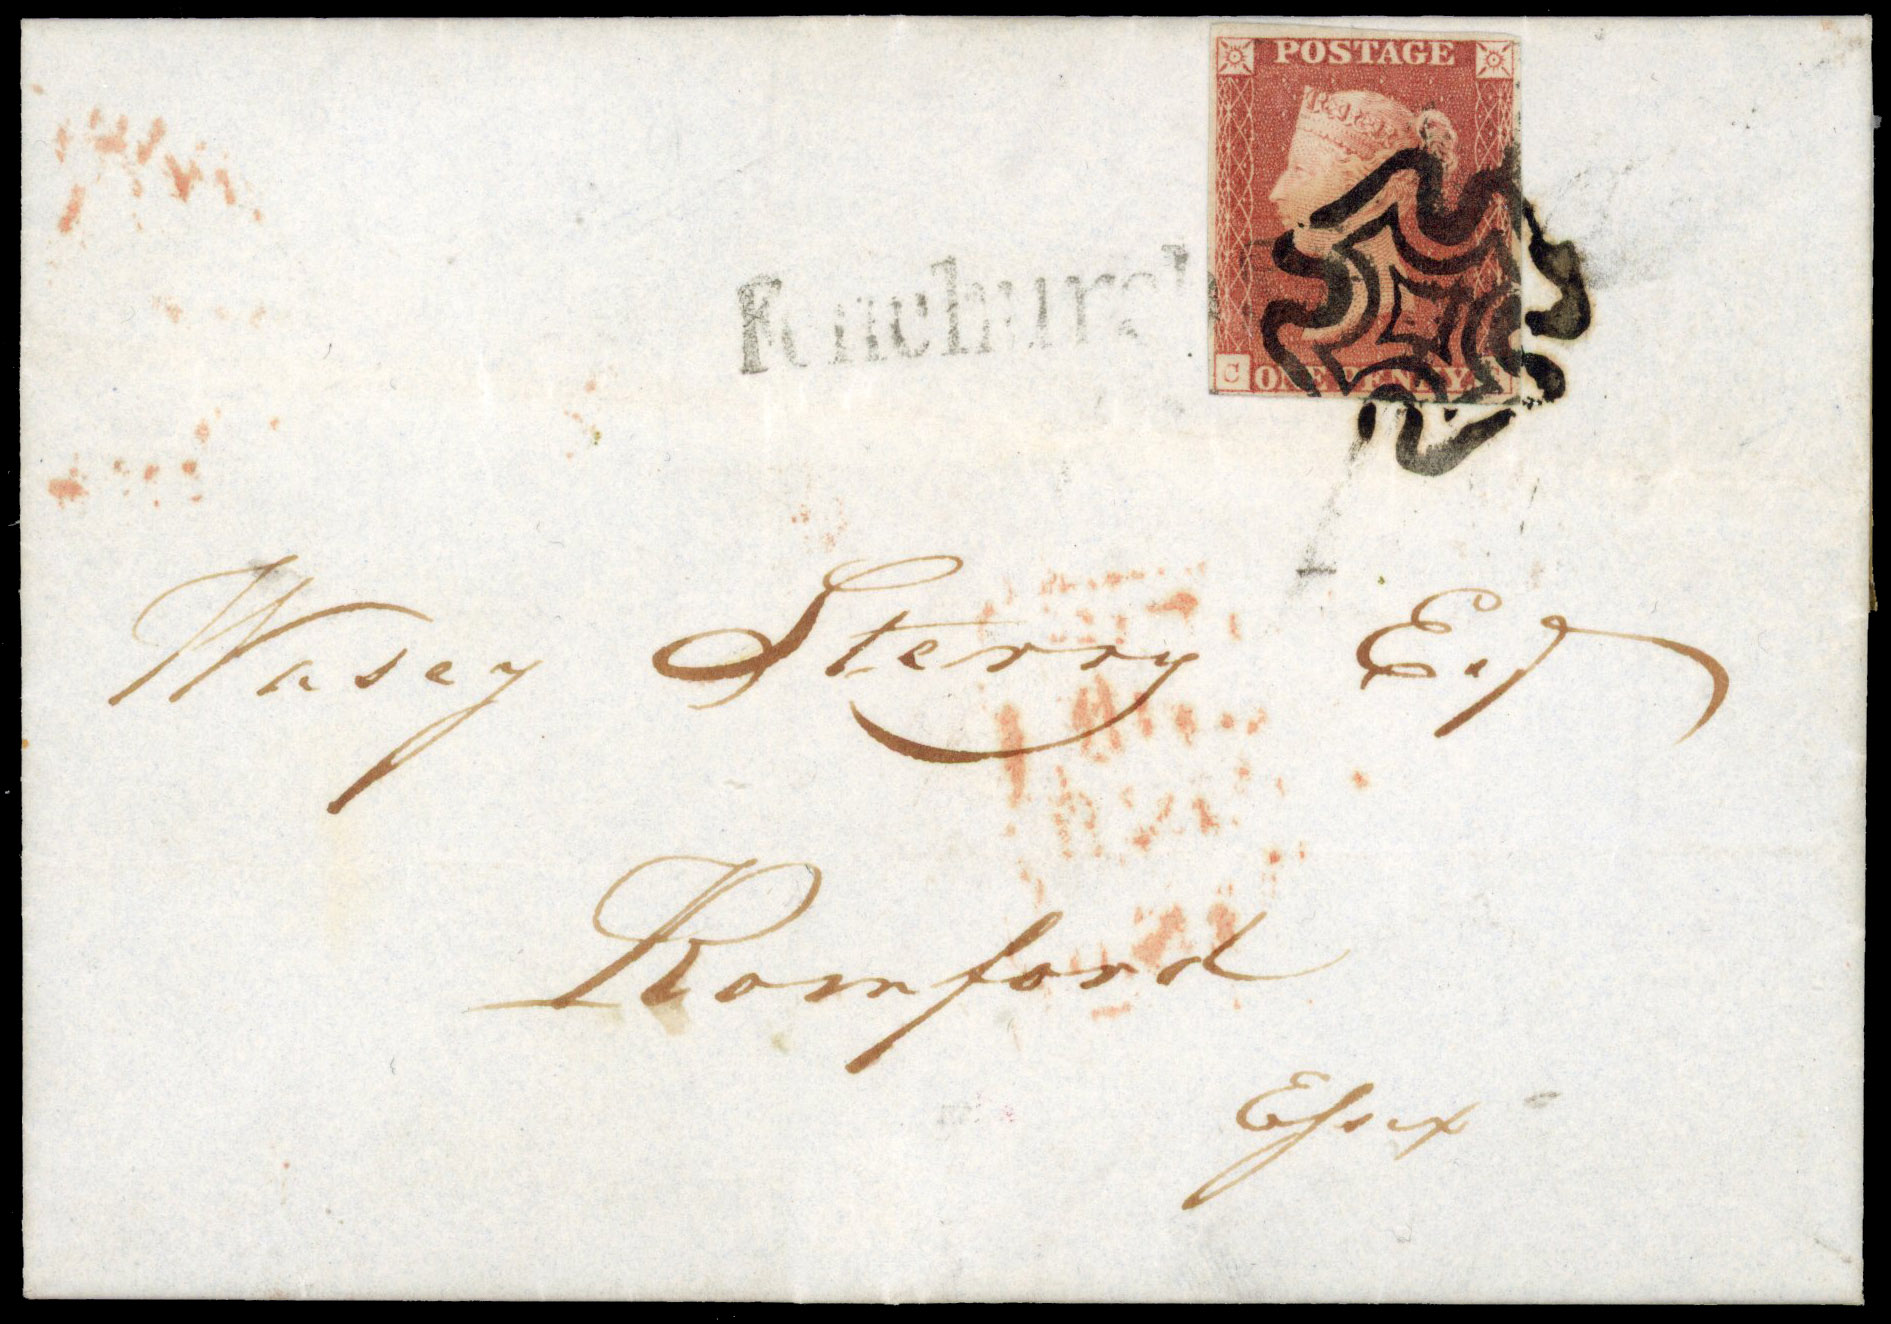 POSTAGE
Fenchurch
C
ONE PENNY
Wasey Sterry Esq
Romford
Essex